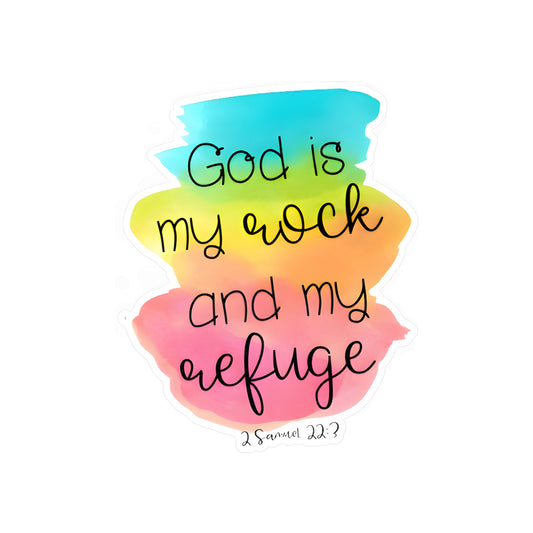 God is
my rock
and my
refuge
2 Samuel 22:3